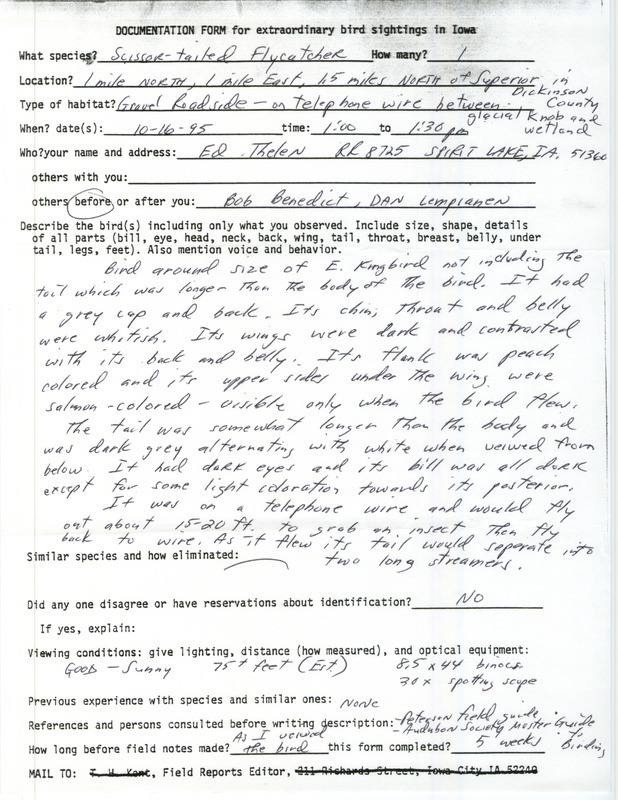 DOCUMENTATION FORM for extraordinary bird sightings in Iowa
What species? Scissor-tailed Flycatcher How many? 1
Location? 1 mile NORTH, 1 mile East, 1.5 miles NORTH of Superior in Dickinson County
Type of habitat? Gravel Roadside - on telephone wire between glacial knob and wetland
When? date(s): 10-16-95 time: 1:00 to 1:30 pm
Who?your name and address: Ed Thelen RR 8725 SPIRIT LAKE, IA. 51360
others with you:
others before or after you: Bob Benedict, DAN Lempianen
Describe the bird(s) including only what you observed. Include size, shape, details
of all parts (bill, eye, head, neck, back, wing, tail, throat, breast, belly, under
tail, legs, feet). Also mention voice and behavior.
Bird around size of E. Kingbird not including the
tail which was longer than the body of the bird. It had
a grey cap and back. Its chin, throat and belly
were whitish. Its wings were dark and contrasted
with its back and belly. It's flank was peach
colored and its upper sides under the wing were
salmon-colored - visible only when the bird flew.
The tail was somewhat longer than the body and
was dark grey alternating with white when veiwed from
below. It had dark eyes and its bill was all dark
except for some light coloration towards its posterior.
It was on a telephone wire and would fly
out about 15-20 ft. to grab an insect then fly
back to wire. As it flew its tail would seperate into
two long streamers.
Similar species and how eliminated:
Did any one disagree or have reservations about identification? NO
If yes, explain:
Viewing conditions: give lighting, distance (how measured), and optical equipment:
Good - Sunny 75+ feet (Est.) 8.5 x 44 binocs
30x spotting scope
Previous experience with species and similar ones: None
References and persons consulted before writing description: - Peterson field guide
- Audubon Society Master Guide to Birding
How long before field notes made? As I veiwed the bird this form completed? 5 weeks
MAIL TO: T. H. Kent, Field Reports Editor, 211 Richards Street, Iowa City IA 52240